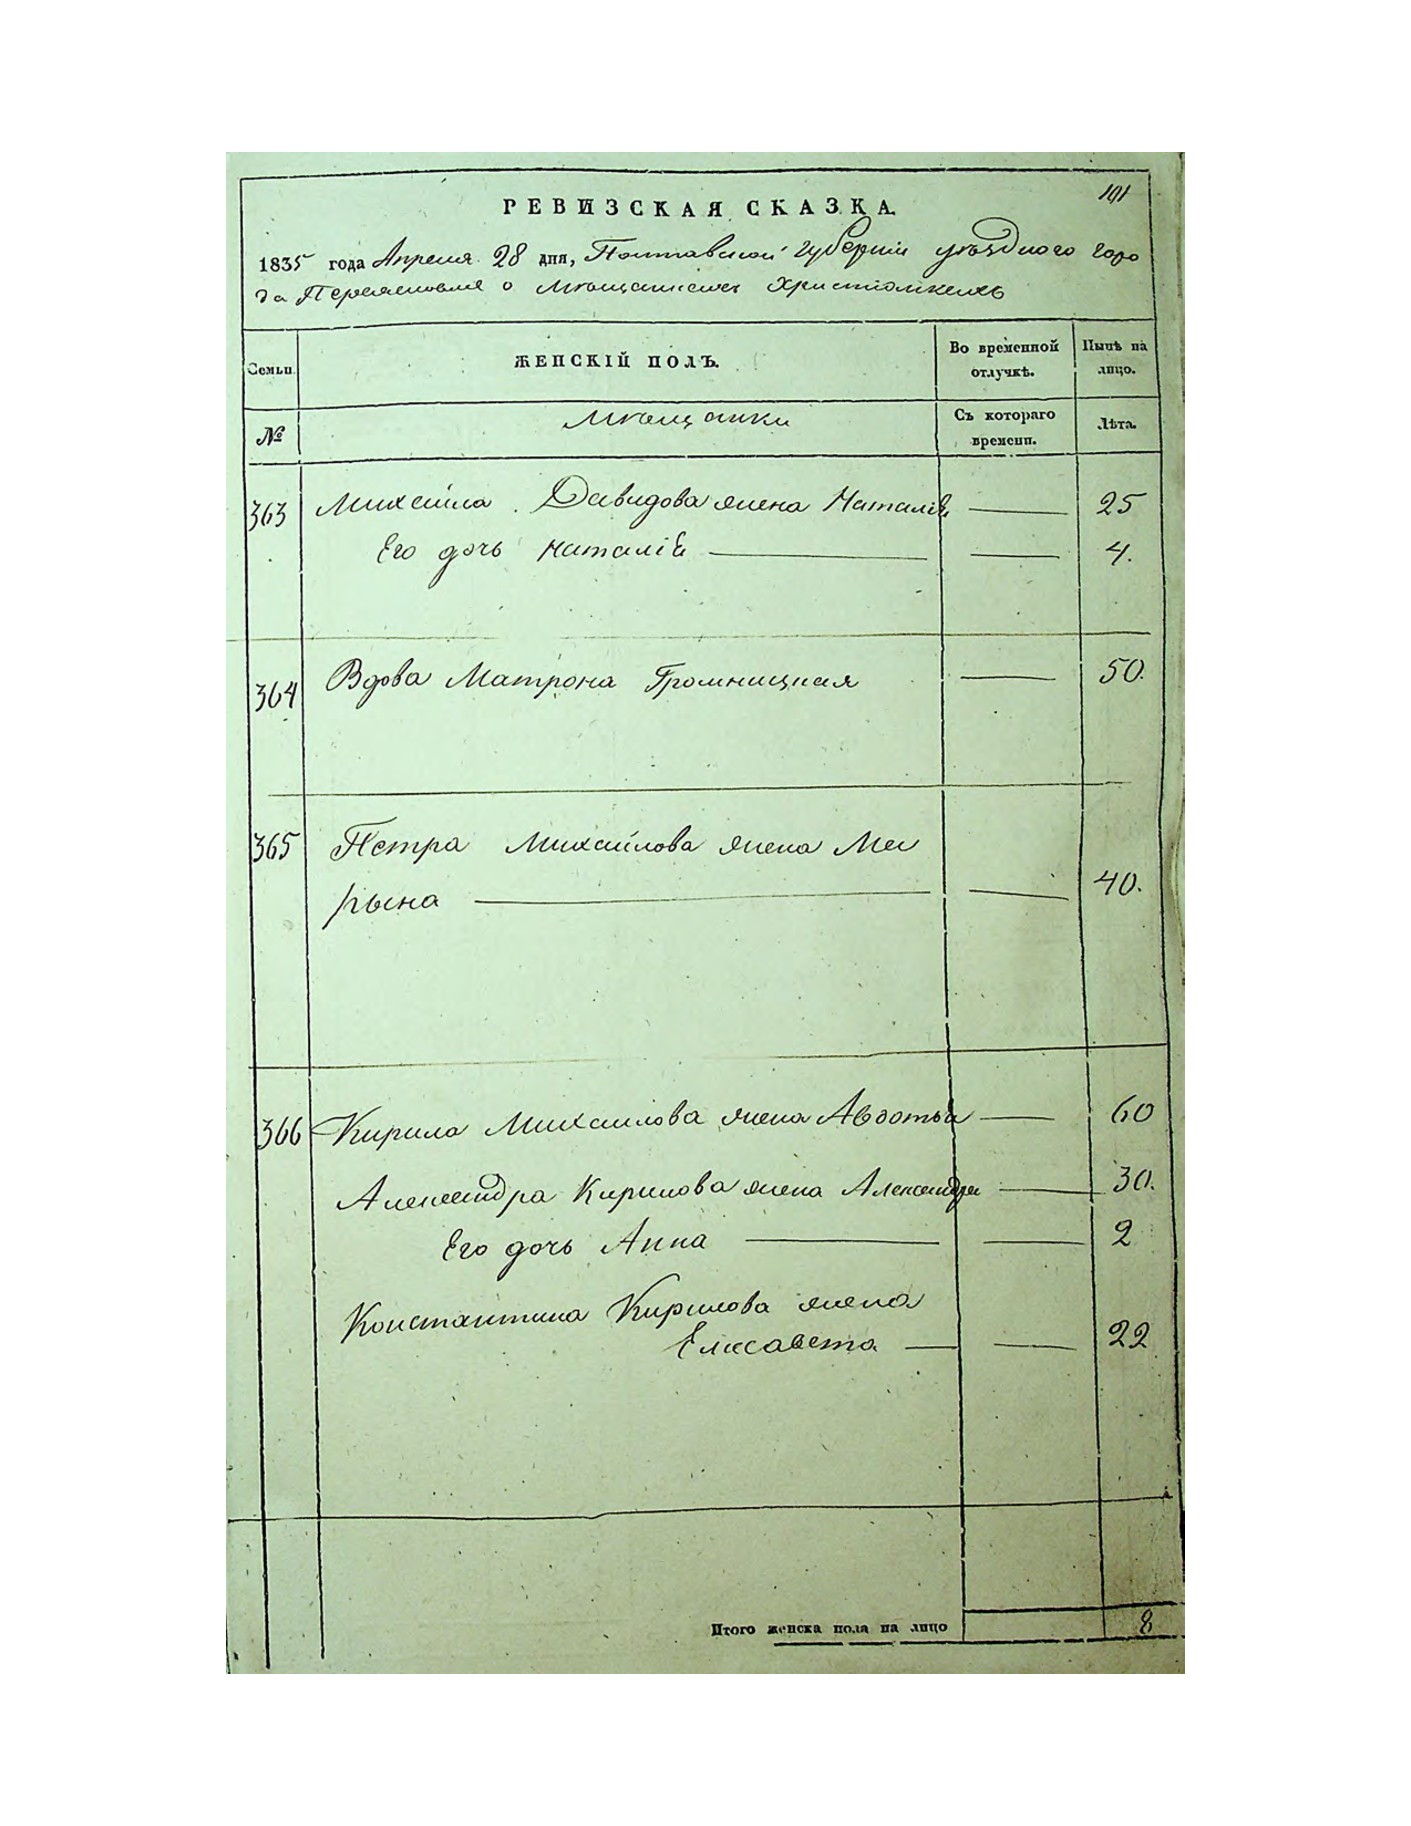 191
РЕВИЗСКАЯ СКАЗКА.
1835 года Апреля 28 дня, Полтавской губернии уѣздного горо
да Переяславля о мѣщанахъ Христіянехъ
Семьи.
ЖЕНСКІЙ ПОЛЪ.
Во временной отлучкѣ.
Нынѣ на лицо.
№
Мѣщанки
Съ котораго времени.
Лѣта.
363 Михайла Давидова жена Наталія 25
Его дочь Наталія 4.
364 Вдова Матрона Громницкая 50.
365 Петра Михайлова жена Ма
рына 40.
366 Кирила Михаилова жена Авдотья 60
Александра Кирилова жена Александра 30.
Его дочь Анна 2
Константина Кирилова жена
Елисавета 22
Итого женска пола на лицо 8